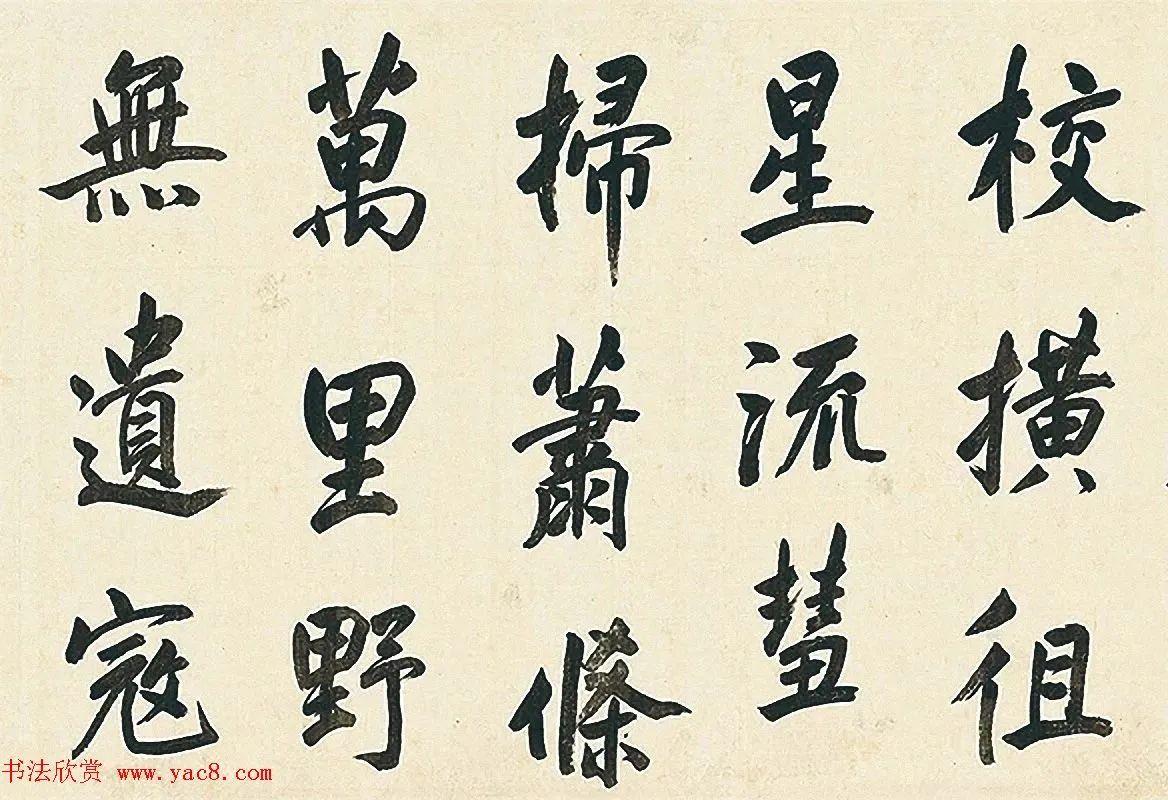 校橫徂
星流彗
掃蕭條
萬里野
無遺寇
书法欣赏 www.yac8.com